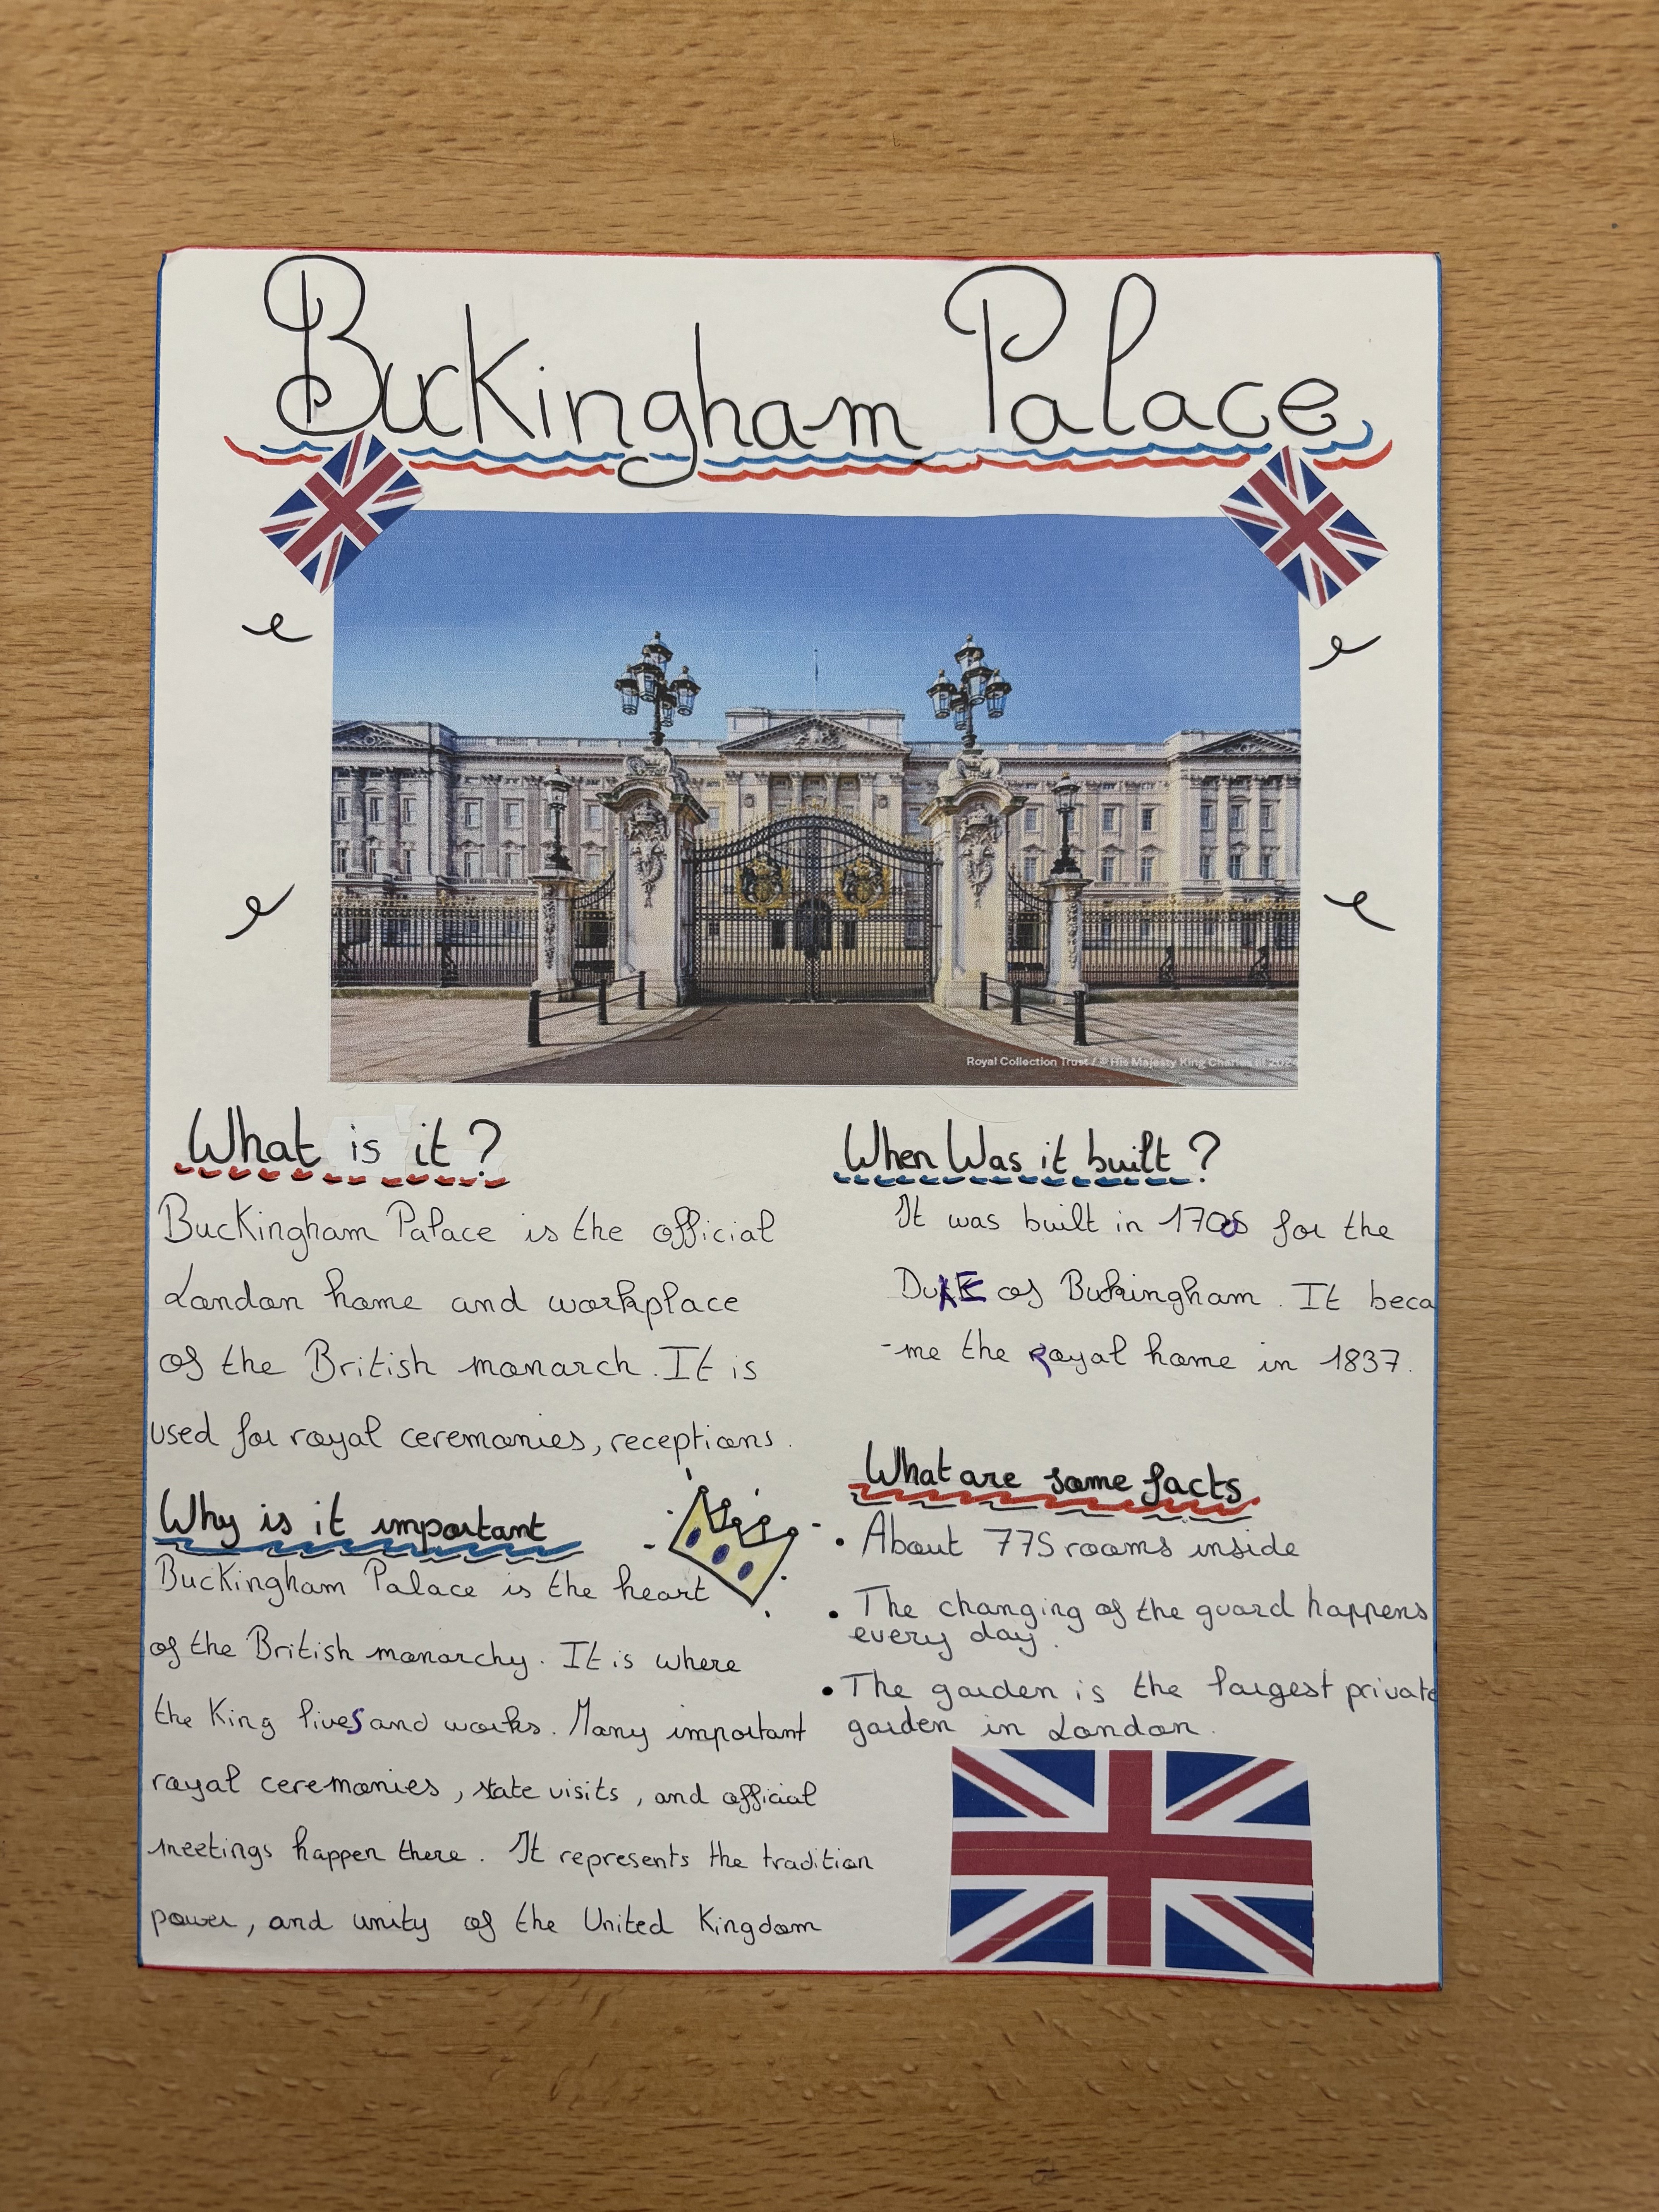 Buckingham Palace
Royal Collection Trust / © His Majesty King Charles III 202
What is it?
Buckingham Palace is the official
London home and workplace
of the British monarch. It is
used for royal ceremonies, receptions.
Why is it important
Buckingham Palace is the heart
of the British monarchy. It is where
the King lives and works. Many important
royal ceremonies, state visits, and official
meetings happen there. It represents the tradition
power, and unity of the United Kingdom
When Was it built?
It was built in for the
DukE of Buckingham. It beca
-me the Royal home in 1837.
What are some facts
• About 775 rooms inside
• The changing of the guard happens
every day.
• The garden is the largest private
garden in London.